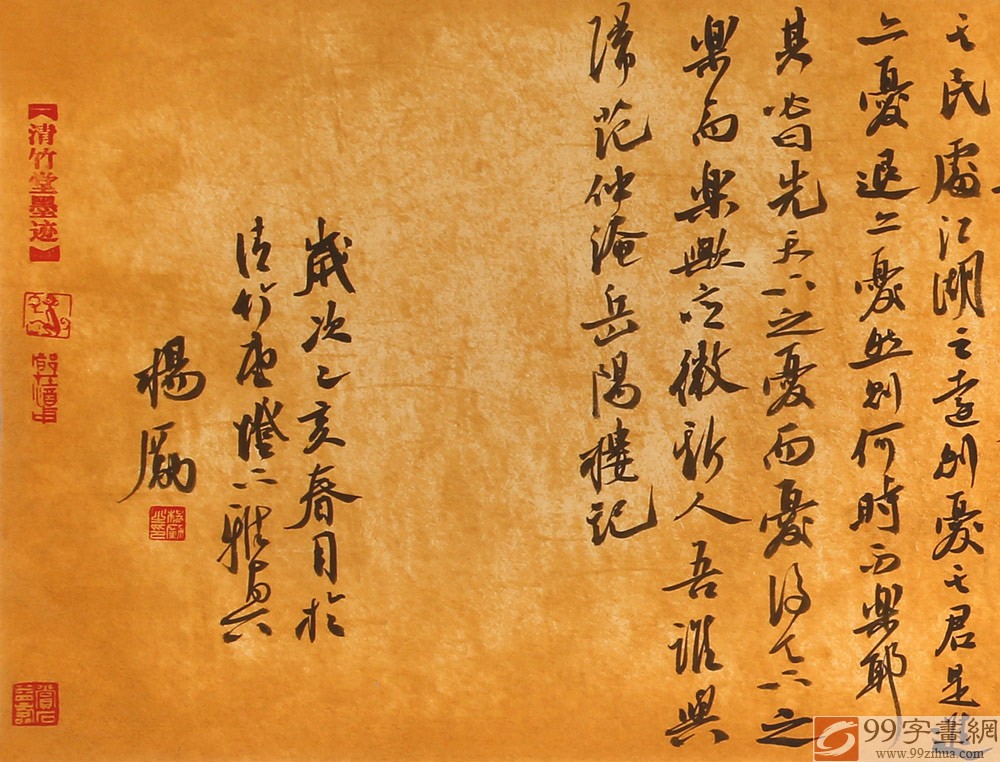 其民處江湖之遠則憂其君是進
亦憂退亦憂然則何時而樂耶
其必曰先天下之憂而憂後天下之
樂而樂歟噫微斯人吾誰與
歸范仲淹岳陽樓記
歲次亥春月於
清竹堂燈下雅興
楊勵
【清竹堂墨迹】
99字畫網
www.99zihua.com